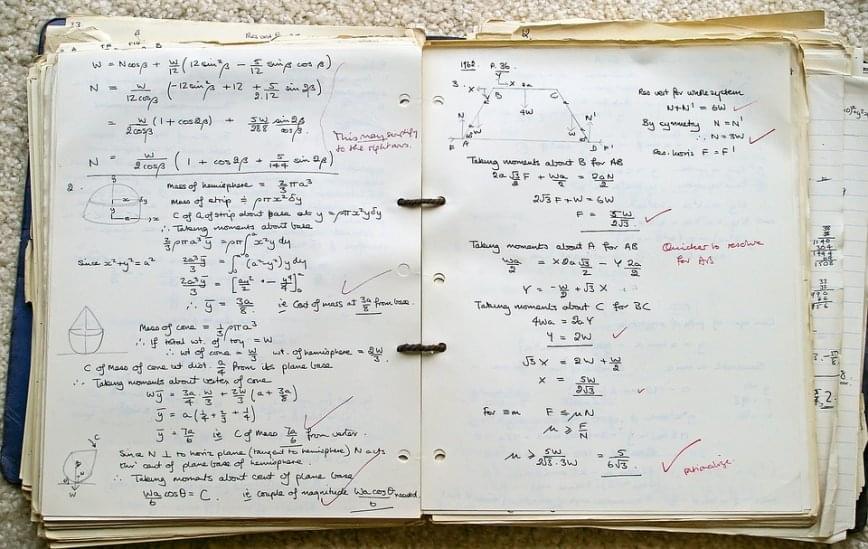 W = N cos β + W/12 (12 sin²β − 5/12 sin β cos β)
N = W/12cosβ (−12 sin²β + 12 + 5/2.12 sin 2β)
= W/2cosβ (1 + cos 2β) + 5W/288 sin 2β/cos β.
This may simplify
to the right ans.
N = W/2cosβ (1 + cos 2β + 5/144 sin 2β)
2.
Mass of hemisphere = 2/3 πρa³
Mass of strip ≑ ρπx²δy
C of G of strip about base
∴ Taking moments about base
2/3 ρπa³ȳ = ρπ∫x²y dy
Since x²+y²=a² 2a³ȳ/3 = ∫(a²−y²)y dy
∴ ȳ = 3a/8. ie Cent of mass at 3a/8 from base.
Mass of cone = 1/3 ρπa³
∴ If total wt. of toy = W
∴ wt of cone = W/3 wt. of hemisphere = 2W/3
C of Mass of cone at dist. a/4 from its plane base
∴ Taking moments about vertex of cone
Wȳ = 3a/4 W/3 + 2W/3 (a + 3a/8)
ȳ = a(1/4 + 2/3 + 1/4)
ȳ = 7a/6 ie C of Mass 7a/6 from vertex.
C
Since N ⊥ to horiz plane (tangent to hemisphere) N acts
thro' cent of plane base of hemisphere.
∴ Taking moments about cent of plane base
W
Wa/6 cosθ = C. ie couple of magnitude Wa cosθ/6 needed
1962. P. 36
3.
Y
X
B
C
4W
N
N'
W
W
F
A
D
F'
Res vert for whole system
N+N' = 6W
By symmetry N = N'
∴ N = 3W
Res. horiz F = F'
Taking moments about B for AB
2a √3/2 F + Wa/2 = 2aN/2
2√3 F + W = 6W
F = 5W/2√3
Taking moments about A for AB
Quicker to resolve
for AB
Wa/2 = X 2a √3/2 − Y 2a/2
Y = −W/2 + √3 X
Taking moments about C for BC
4Wa = 2aY
Y = 2W
√3 X = 2W + W/2
X = 5W/2√3
F ≤ μN
μ ≥ F/N
μ ≥ 5W/2√3.3W = 5/6√3
rationalise.